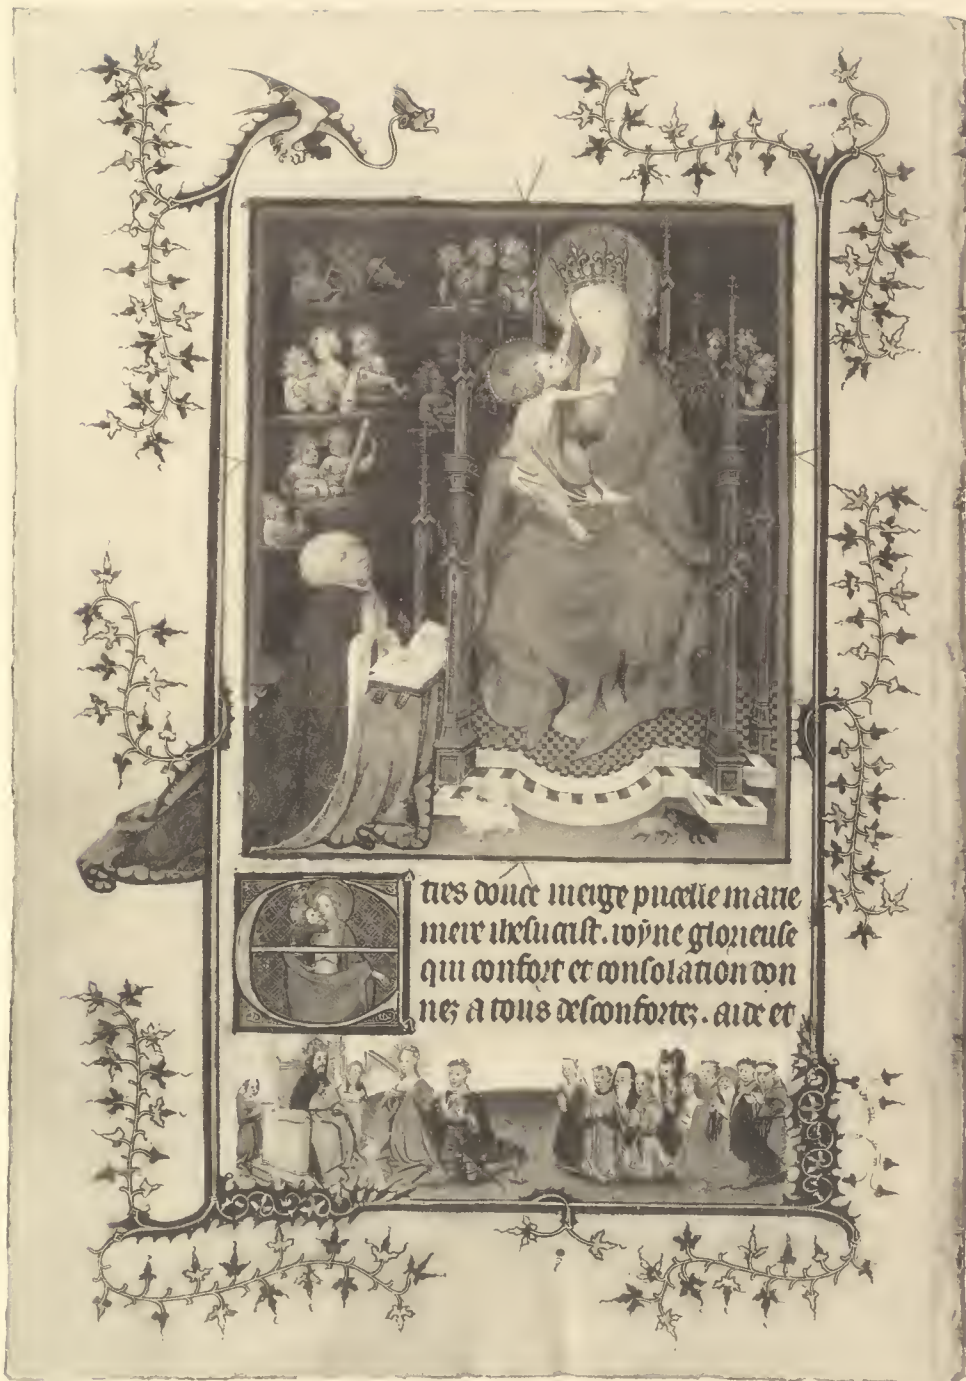 E tres douce vierge pucelle marie
mere ihesucrist. royne glorieuse
qui confort et consolation don
nez a tous desconfortez. aide et